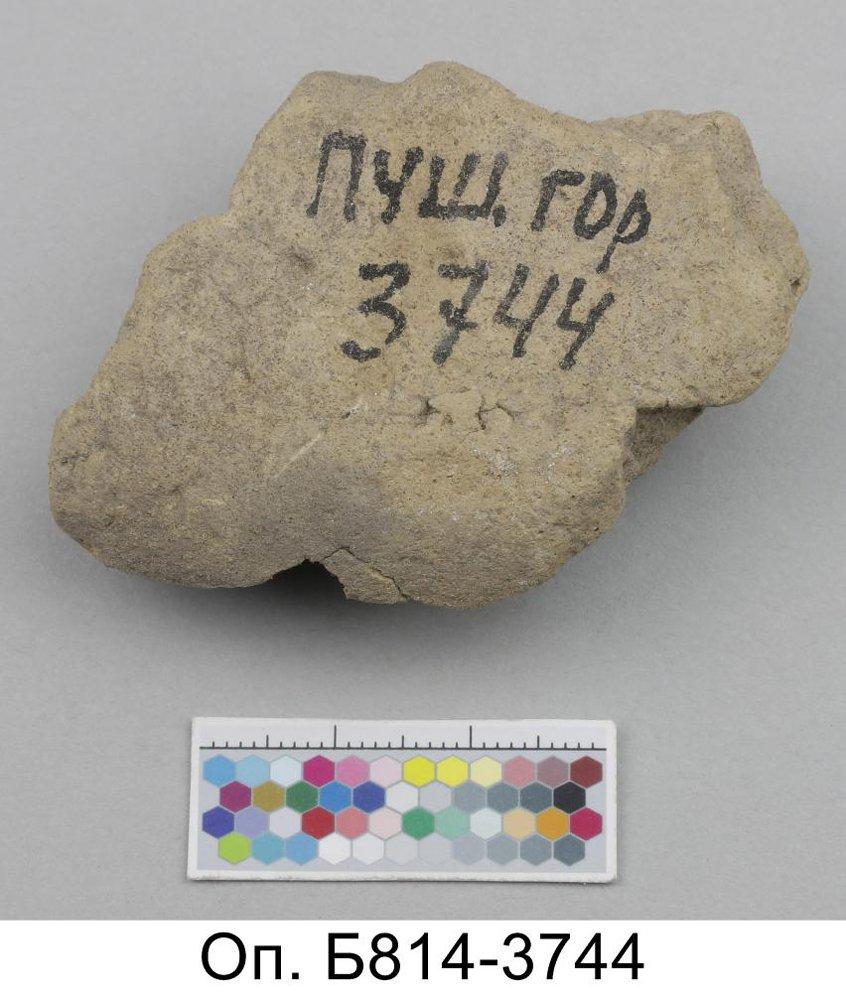 ПУШ. ГОР
3744
Оп. Б814-3744